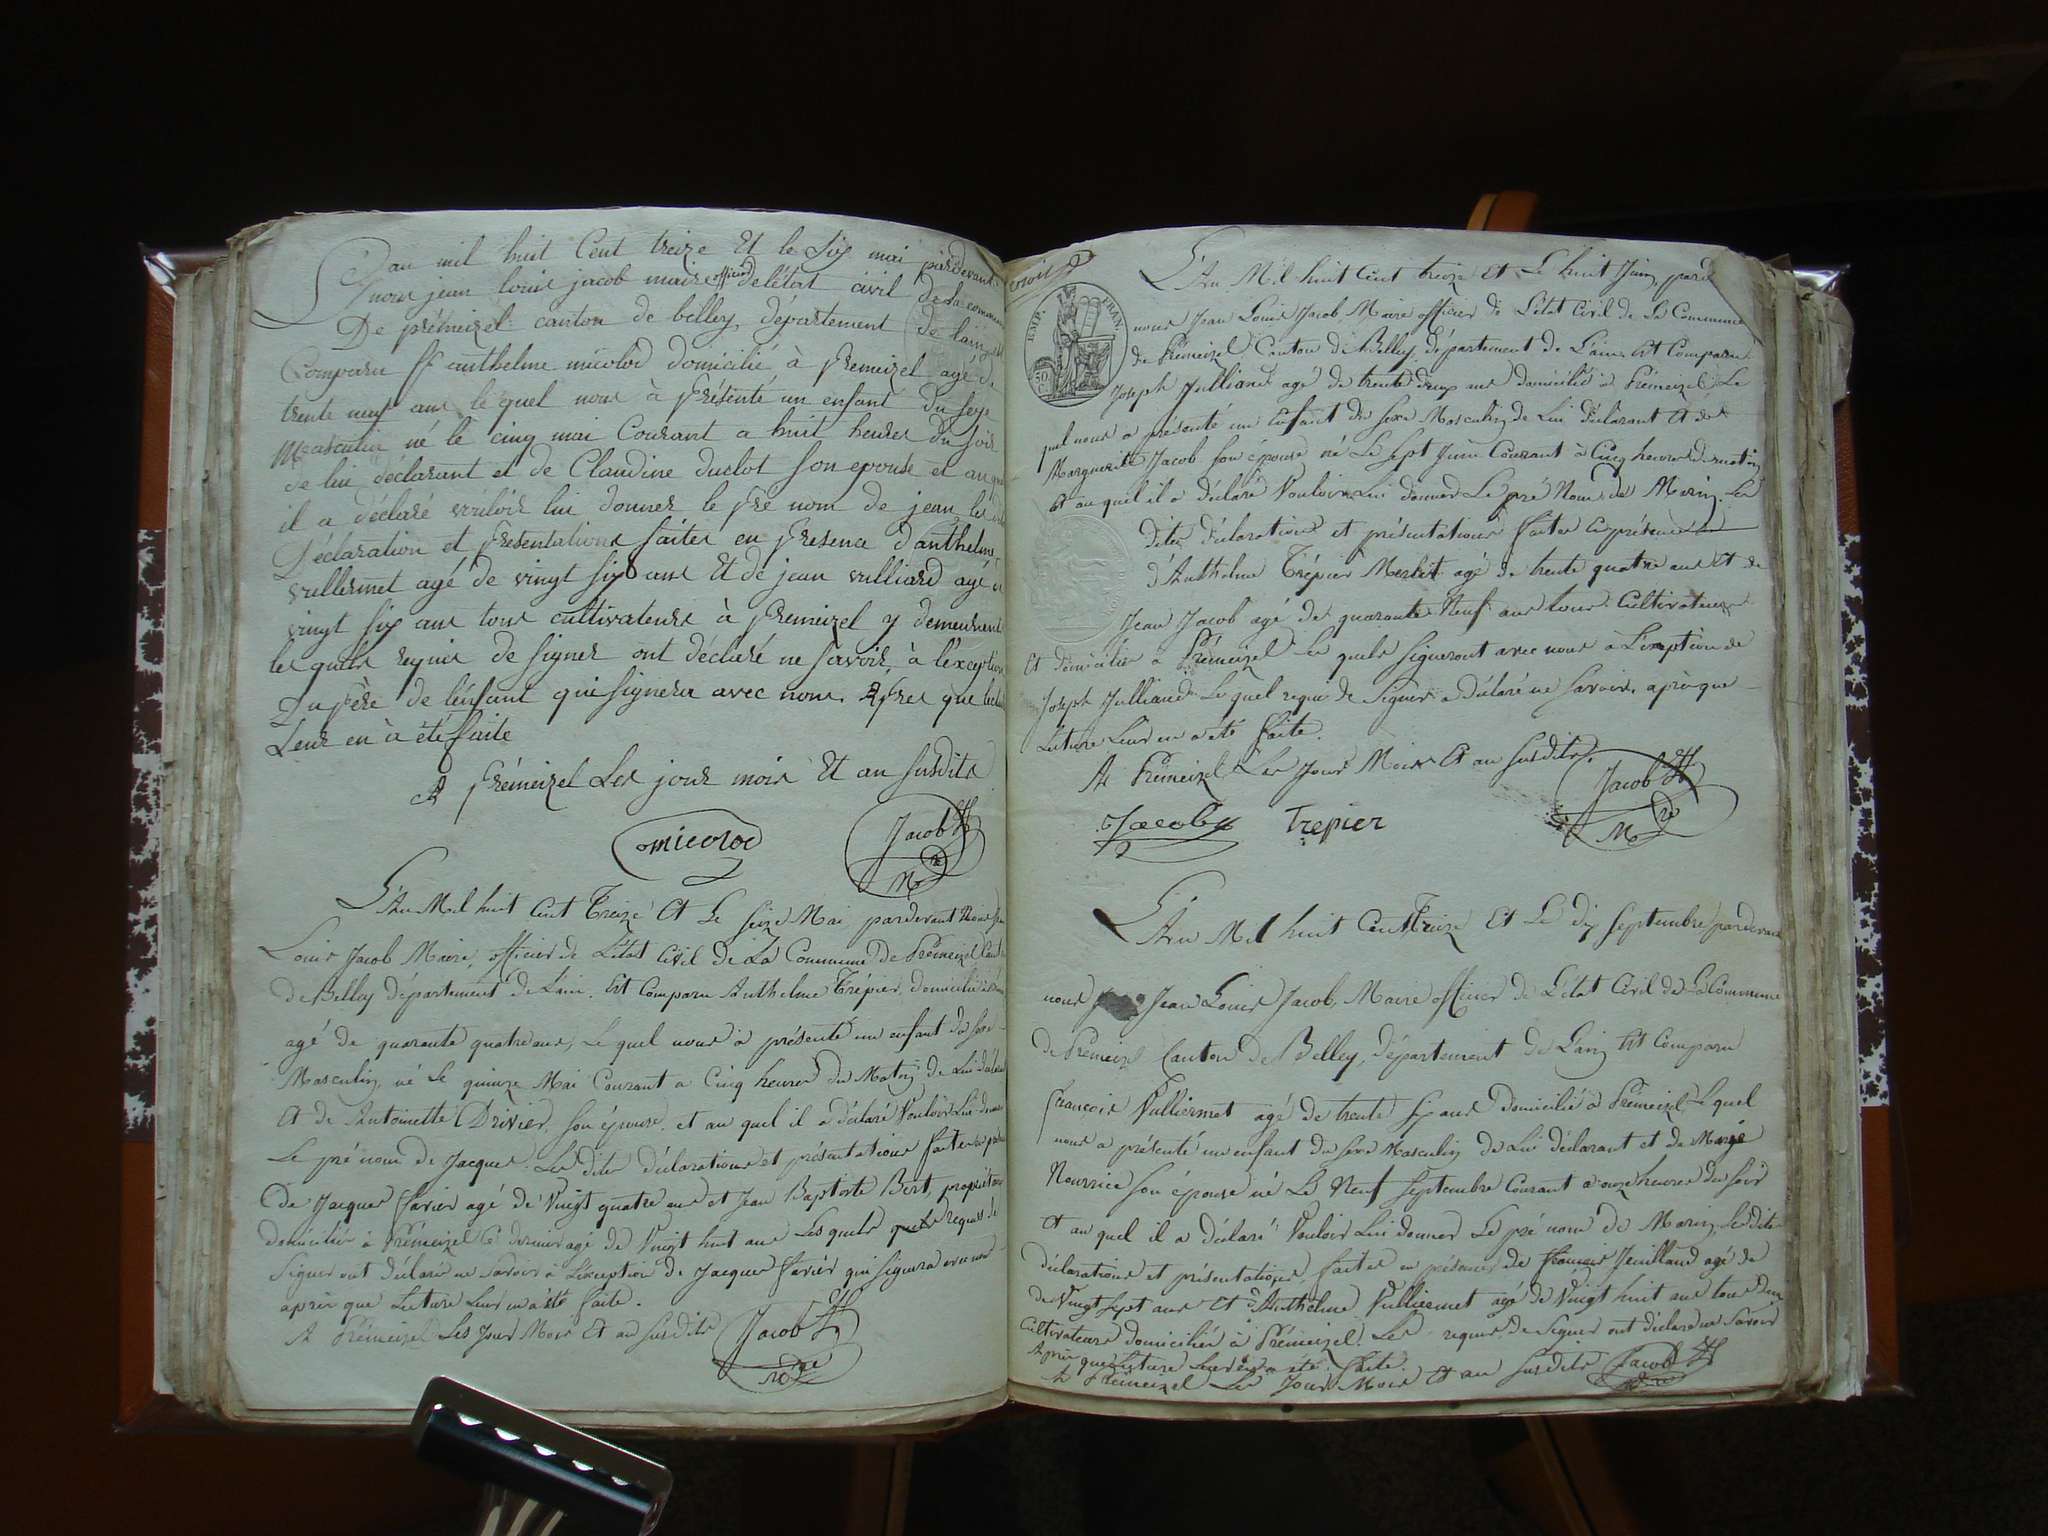 Lan mil huit Cent treize Et le Six mai pardevant
nous jean louis jacob maire officier de létat civil de la commune
De prémeizel canton de belley, département de lain, est
Comparu anthelme micolod domicilié à Premeizel agé de
trente neuf ans le quel nous à Présenté un enfant du Sexe
Masculin né le cinq mai Courant a huit heures du soir
de lui déclarant et de Claudine duclot son epouse et au quel
il a déclaré vouloir lui donner le Pre nom de jean les
Déclaration et Presentations faites en Presence d'anthelme
vullermet agé de vingt six ans Et de jean vulliard agé
vingt six ans tous cultivateurs à Premeizel y demeurent
les quels requis de signer ont déclaré ne savoir, à l'exception
Du Père de l'enfant qui signera avec nous Après que lecture
Leur en à été faite
A Prémeizel Les jour mois Et an susdits
micolod Jacob
Mre
L'An Mil huit Cent Treize Et Le seize Mai pardevant Nous Jean
Louis Jacob Maire, officier de L'état Civil de La Commune de Prémeizel Canton
de Belley département de L'ain. Est Comparu Anthelme Trépier, domicilié à
agé de quarante quatre ans, Le quel nous à présenté un enfant du sexe
Masculin, né Le quinze Mai Courant a Cinq heures du Matin, de Lui déclarant
Et de Antoinette Drivier, son épouse, et au quel il a déclaré Vouloir Lui donner
Le pré nom de Jacques. Les dites déclarations et présentations faites en présence
de Jacques favier agé de Vingt quatre ans et Jean Baptiste Bert, propriétaires
domiciliés à Prémeizel Ce dernier agé de Vingt huit ans Les quels requis de
Signer ont déclaré ne savoir à L'exception de Jacques favier qui signera avec nous
après que Lecture Leur en a été faite.
A Prémeizel Les Jour Mois Et an susdits Jacob
Mre
EMP. FRAN.
50 C.
L'An Mil huit Cent treize Et Le huit Juin, pard
nous Jean Louis Jacob, Maire officier de L'état Civil de La Commune
de Prémeizel Canton de Belley, département de L'ain. Est Comparu
Joseph Julliand agé de trente deux ans domicilié à Prémeizel Le
quel nous a présenté un Enfant du sexe Masculin, de Lui déclarant Et de
Marguerite Jacob son épouse né Le sept Juin Courant à Cinq heures du matin
Et au quel il a déclaré Vouloir Lui donner Le pré Nom de Marin, Les
dites déclarations et présentations faites en présence
d'Anthelme Trépier Merlet agé de trente quatre ans Et de
Jean Jacob agé de quarante Neuf ans tous Cultivateurs
Et domiciliés à Prémeizel Les quels signeront avec nous à L'exeption de
Joseph Julliand Le quel requis de Signer a déclaré ne savoir, après que
Lecture Leur en a été faite.
A Prémeizel Les Jour Mois Et an susdits.
Jacob Trepier Jacob
Mre
L'An Mil huit Cent Treize Et Le dix septembre pardevant
nous Jean Louis Jacob, Maire officier de L'état Civil de La Commune
de Prémeizel Canton de Belley, département de L'ain, Est Comparu
francois Vulliermet agé de trente ans Domicilié à Prémeizel, Le quel
nous a présenté un enfant du sexe Masculin de Lui déclarant et de Marie
Nourrice son épouse né Le Neuf Septembre Courant a onze heures du soir
Et au quel il a déclaré Vouloir Lui donner Le pré nom de Marin, Les dites
déclarations et présentations, faites en présence de francois Jeuilland agé de
de Vingt sept ans Et d'Anthelme Vulliermet agé de Vingt huit ans tous deux
Cultivateurs domiciliés à Prémeizel. Les requis de Signer ont déclaré ne savoir
Après que Lecture Leur en a été faite.
A Prémeizel Les Jour Mois Et an susdits Jacob
Mre